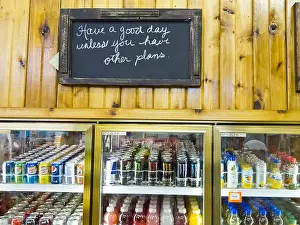 Have a good day
unless you have
other plans.